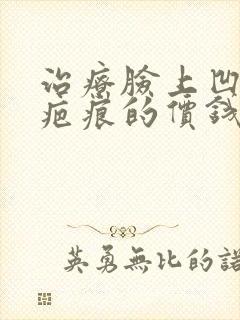 治療臉上凹
疤痕的價錢
英勇無比的諾